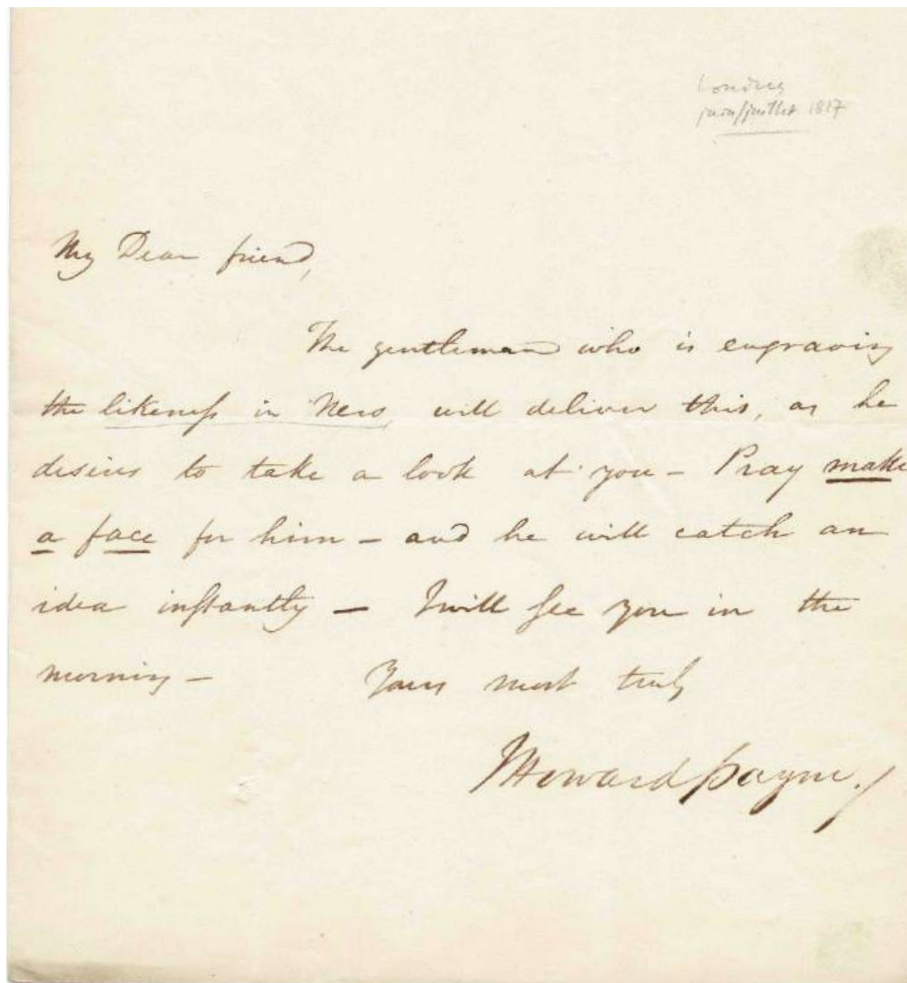 Londres
juin/juillet 1817
My Dear friend,
The gentleman who is engraving
the likeness in Nero, will deliver this, as he
desires to take a look at you – Pray make
a face for him – and he will catch an
idea instantly – I will see you in the
morning – Yours most truly
J Howard Payne.